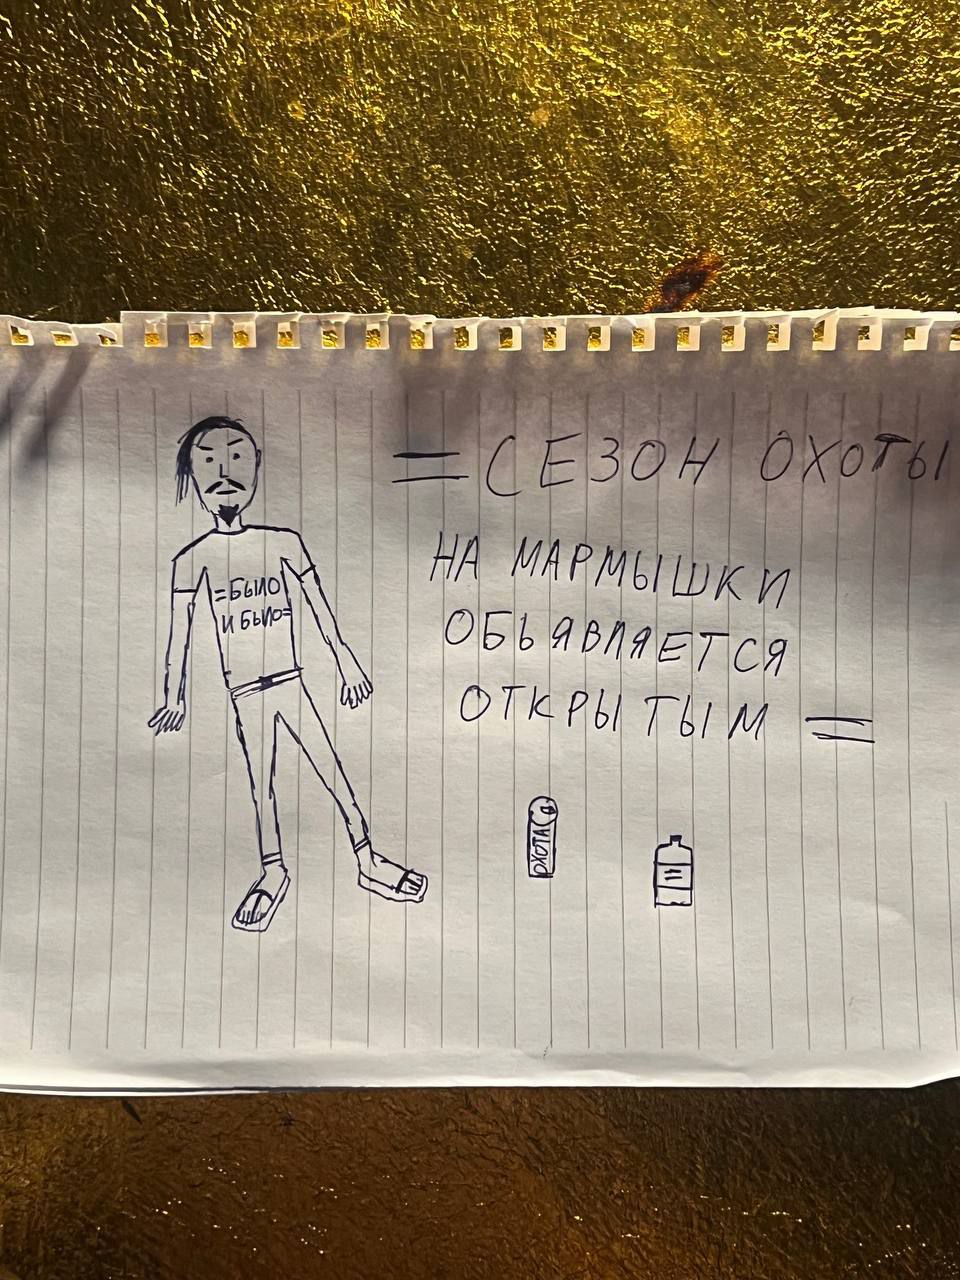 = СЕЗОН ОХОТЫ
НА МАРМЫШКИ
ОБЬЯВЛЯЕТСЯ
ОТКРЫТЫМ =
=БЫЛО
И БЫЛО=
ОХОТА